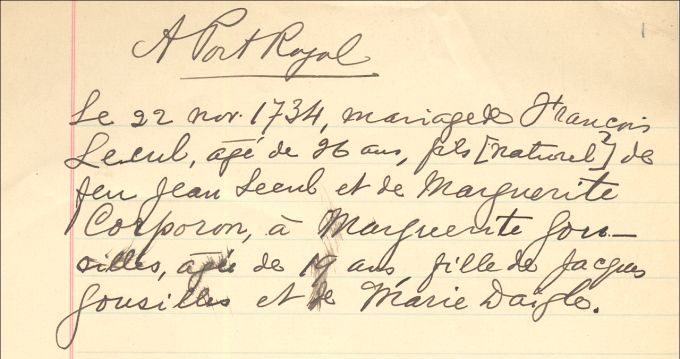 A Port Royal
1
Le 22 nov. 1734, mariage de François
Leeul, âgé de 26 ans, fils [naturel?] de
feu Jean Leeul et de Marguerite
Corporon, à Marguerite Gou-
silles, âgée de 19 ans, fille de Jacques
Gousilles et de Marie Daigle.